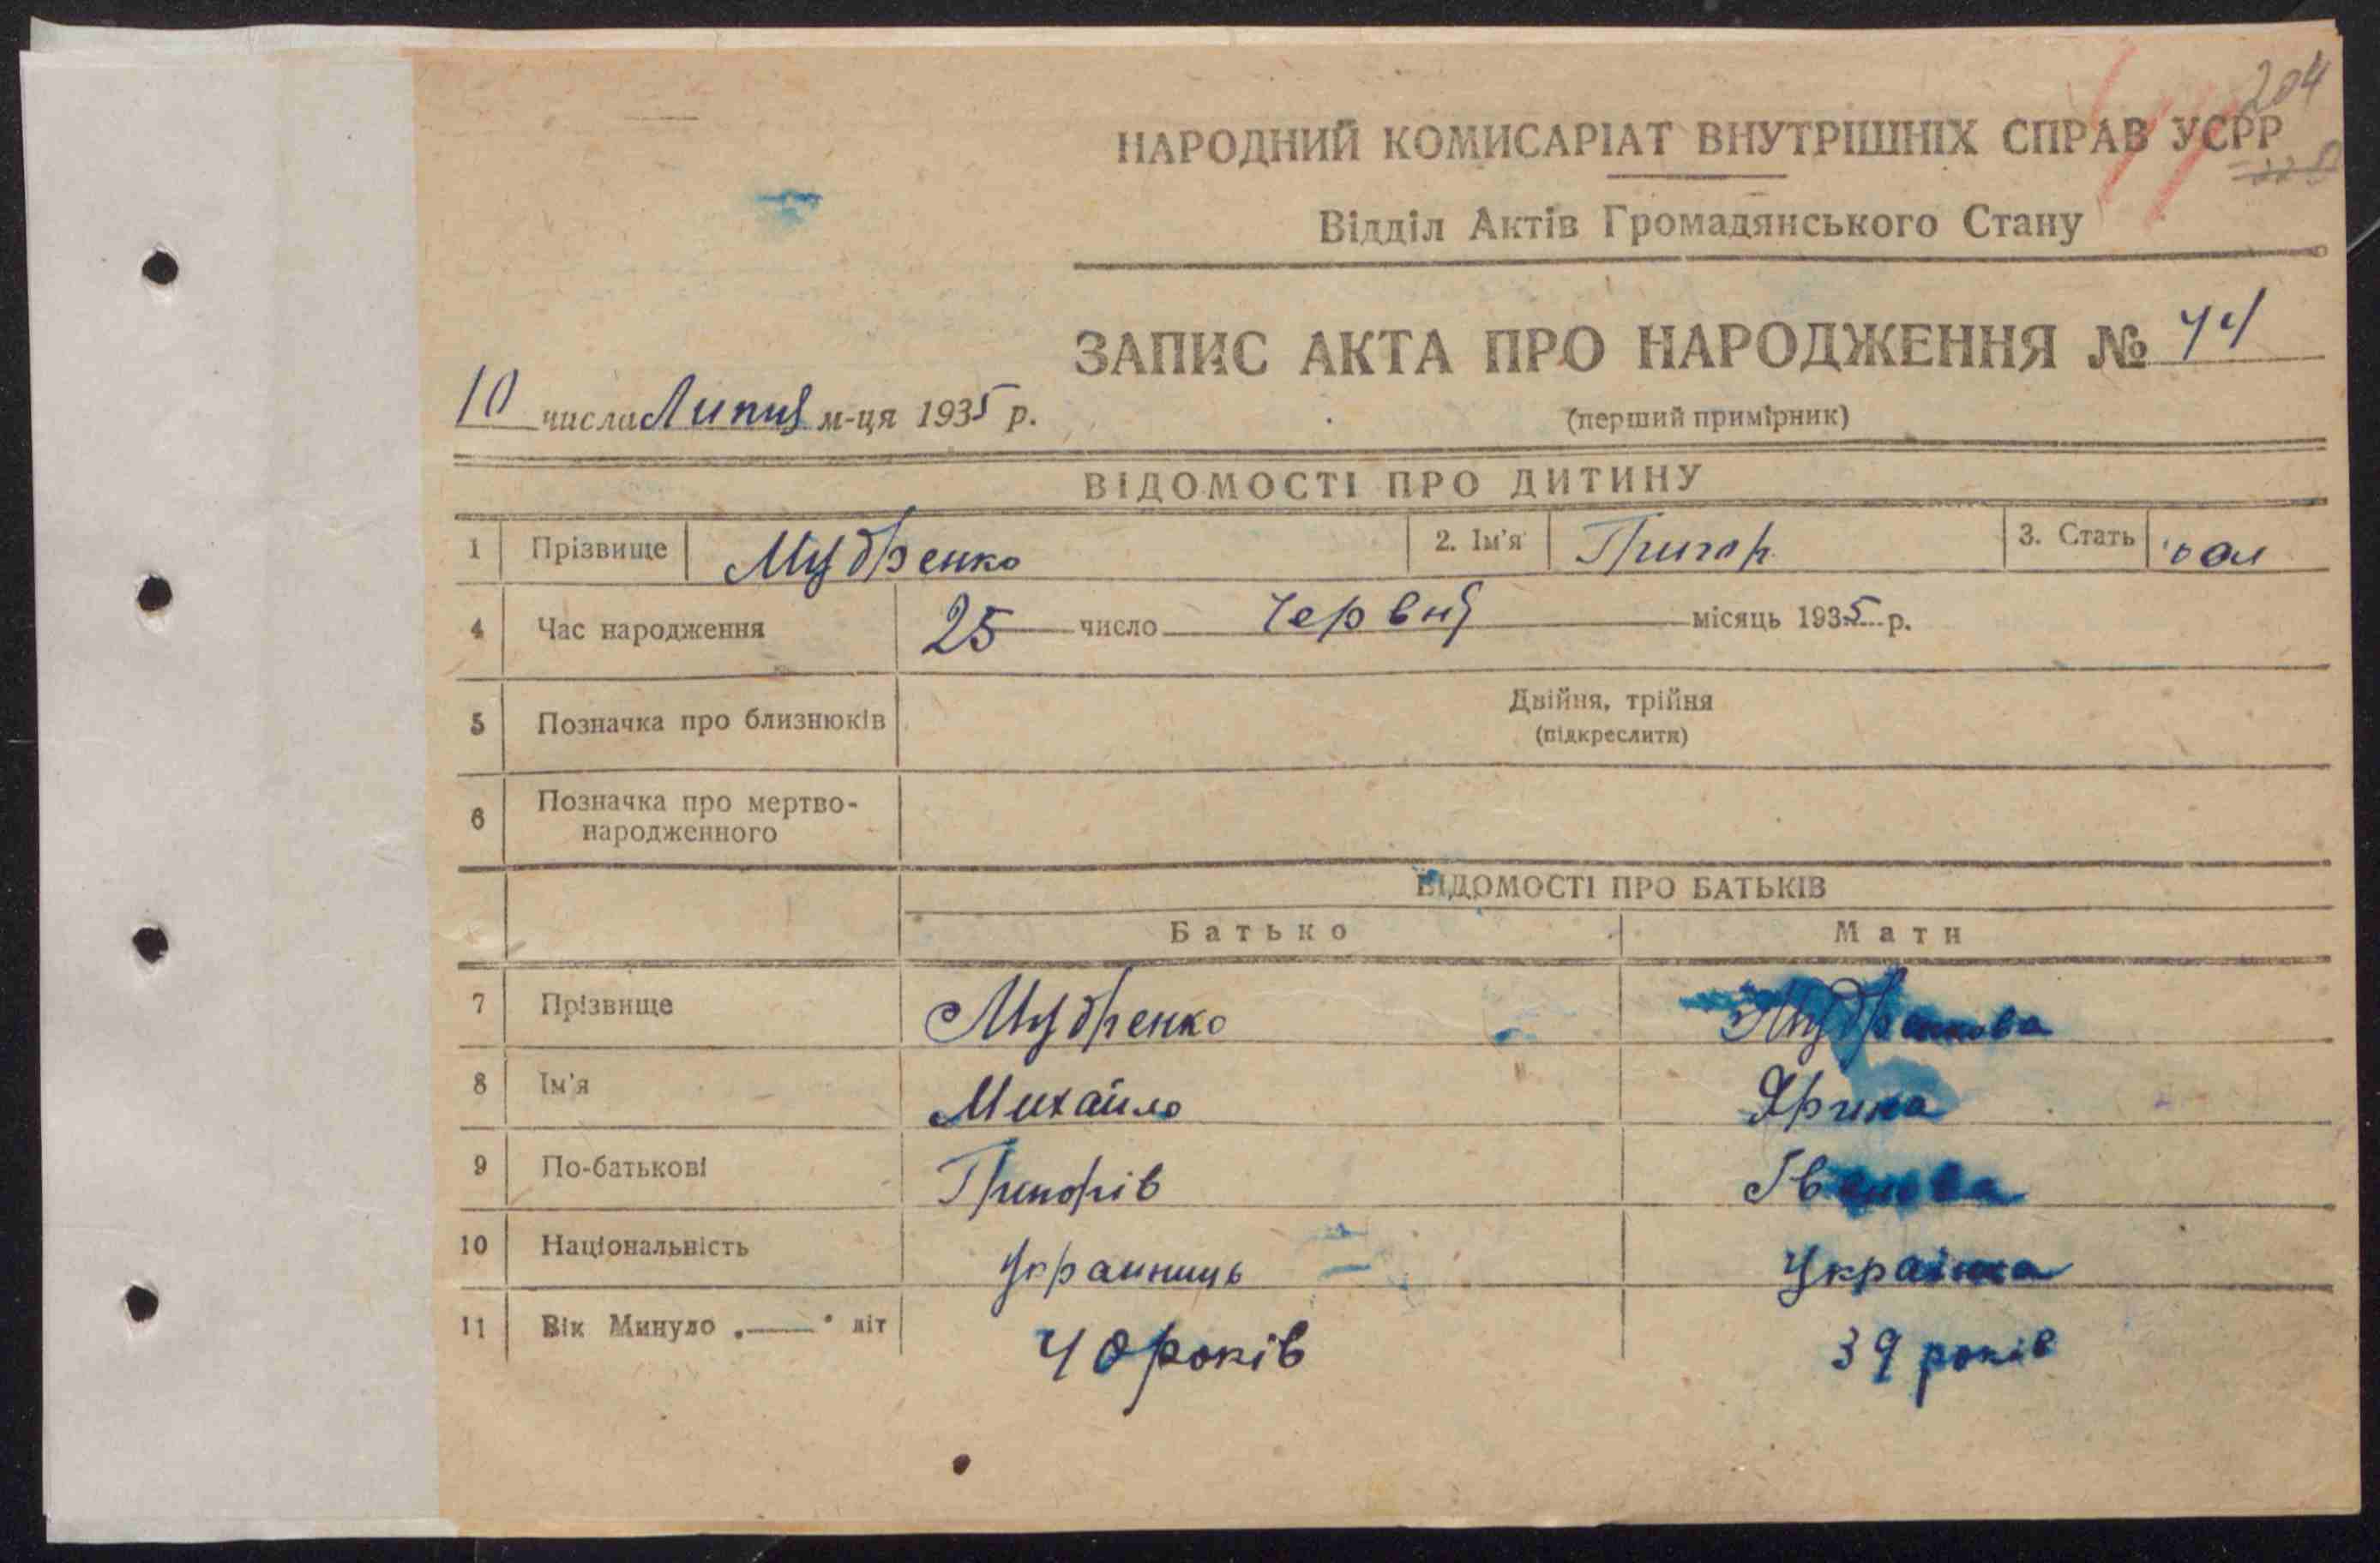 204
НАРОДНИЙ КОМИСАРІАТ ВНУТРІШНІХ СПРАВ УСРР
Відділ Актів Громадянського Стану
ЗАПИС АКТА ПРО НАРОДЖЕННЯ № 44
10 числа Липня м-ця 1935 р.
(перший примірник)
ВІДОМОСТІ ПРО ДИТИНУ
1 Прізвище Мудренко 2. Ім'я Григор 3. Стать чол
4 Час народження 25 число червня місяць 1935 р.
5 Позначка про близнюків Двійня, трійня
(підкреслити)
6 Позначка про мертво-
народженного
ВІДОМОСТІ ПРО БАТЬКІВ
Батько Мати
7 Прізвище Мудренко Мудренкова
8 Ім'я Михайло Ярина
9 По-батькові Григорів Іванова
10 Національність Украинць Українка
11 Вік Минуло „—" літ 40 років 39 років